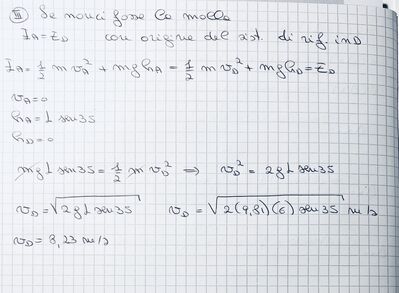 III Se non ci fosse la molla
EA = ED con origine del sist. di rif. in D
EA = 1/2 m vA² + mghA = 1/2 m vD² + mghD = ED
vA = 0
hA = L sen35
hD = 0
mgL sen35 = 1/2 m vD² ⇒ vD² = 2gL sen35
vD = √2gL sen35 vD = √2(9,81)(6) sen35 m/s
vD = 8,23 m/s